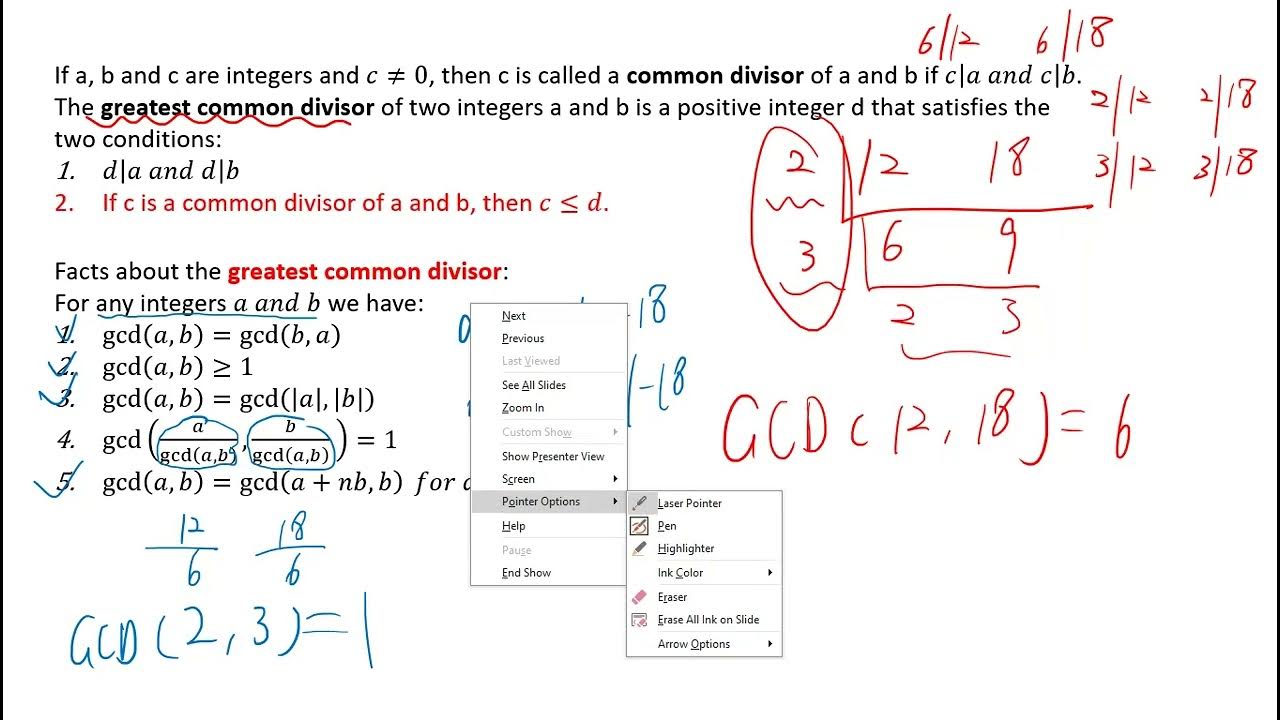 6|12 6|18
If a, b and c are integers and c ≠ 0, then c is called a common divisor of a and b if c|a and c|b.
The greatest common divisor of two integers a and b is a positive integer d that satisfies the
two conditions:
1. d|a and d|b
2. If c is a common divisor of a and b, then c ≤ d.
2|12 2|18
3|12 3|18
2 12 18
3 6 9
2 3
GCD(12, 18) = 6
Facts about the greatest common divisor:
For any integers a and b we have:
1. gcd(a, b) = gcd(b, a)
2. gcd(a, b) ≥ 1
3. gcd(a, b) = gcd(|a|, |b|)
4. gcd(a/gcd(a,b), b/gcd(a,b)) = 1
5. gcd(a, b) = gcd(a + nb, b) for
18
|-18
12/6 18/6
GCD(2, 3) = 1
Next
Previous
Last Viewed
See All Slides
Zoom In
Custom Show
Show Presenter View
Screen
Pointer Options
Help
Pause
End Show
Laser Pointer
Pen
Highlighter
Ink Color
Eraser
Erase All Ink on Slide
Arrow Options